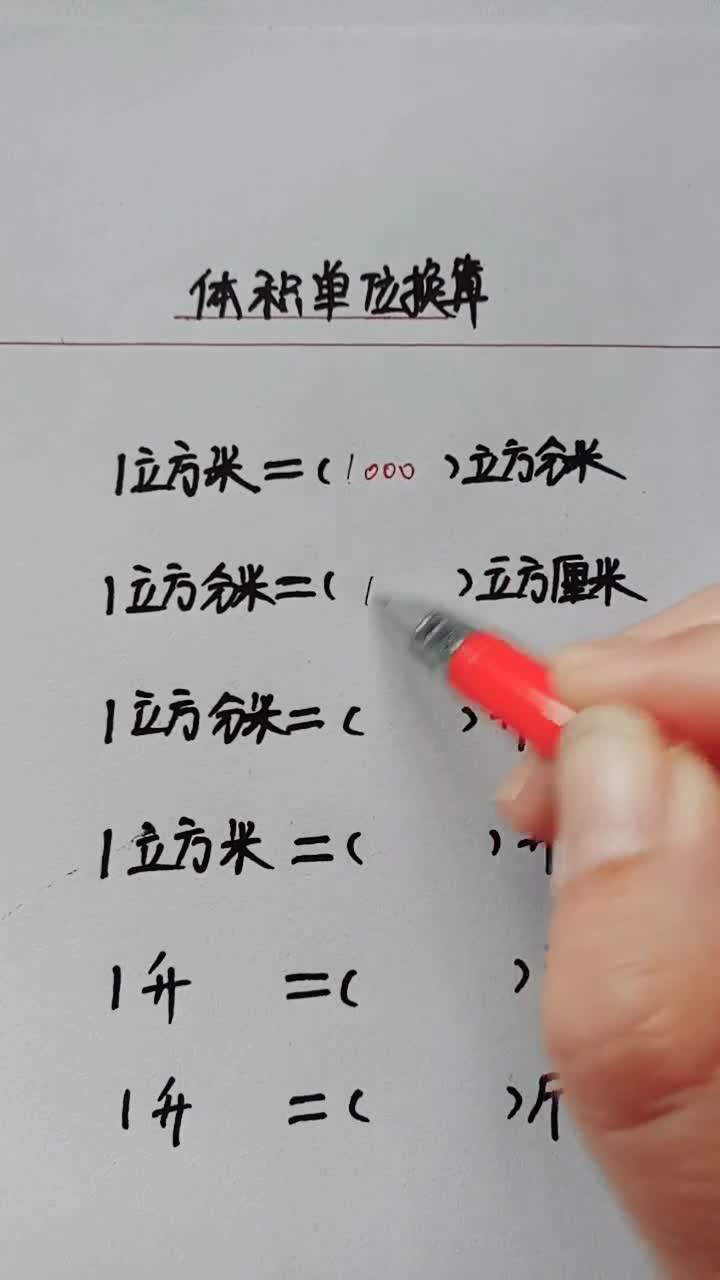 体积单位换算
1立方米=(1000)立方分米
1立方分米=(1 )立方厘米
1立方分米=( )升
1立方米=( )升
1升=( )
1升=( )斤